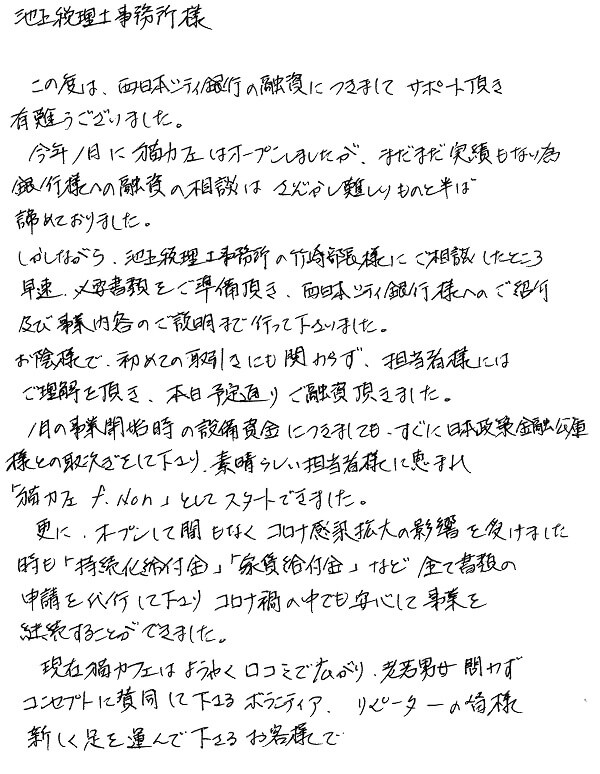 池上税理士事務所様
この度は、西日本シティ銀行の融資につきまして サポート頂き
有難うございました。
今年1月に猫カフェはオープンしましたが、まだまだ実績もない為
銀行様への融資の相談は さぞかし難しいものと半ば
諦めておりました。
しかしながら、池上税理士事務所の竹崎部長様にご相談したところ
早速、必要書類をご準備頂き、西日本シティ銀行様へのご紹介
及び事業内容のご説明まで行って下さいました。
お陰様で、初めての取引きにも関わらず、担当者様には
ご理解を頂き、本日予定通りご融資頂きました。
1月の事業開始時の設備資金につきましても、すぐに日本政策金融公庫
様との取次ぎをして下さり、素晴らしい担当者様に恵まれ
「猫カフェ f.Non」としてスタートできました。
更に、オープンして間もなくコロナ感染拡大の影響を受けました
時も「持続化給付金」「家賃給付金」など全て書類の
申請を代行して下さりコロナ禍の中でも安心して事業を
継続することができました。
現在猫カフェはようやく口コミで広がり、老若男女問わず
コンセプトに賛同して下さるボランティア、リピーターの皆様
新しく足を運んで下さるお客様で